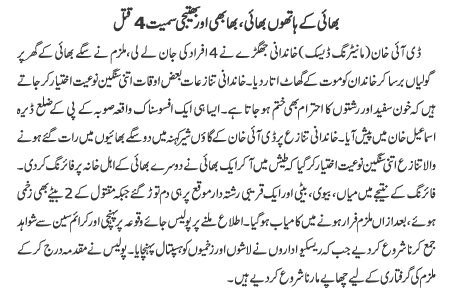 بھائی کے ہاتھوں بھائی، بھابھی اور بھتیجی سمیت 4 قتل
ڈی آئی خان (مانیٹرنگ ڈیسک) خاندانی جھگڑے نے 4 افراد کی جان لے لی، ملزم نے سگے بھائی کے گھر پر
گولیاں برسا کر خاندان کو موت کے گھاٹ اتار دیا۔ خاندانی تنازعات بعض اوقات اتنی سنگین نوعیت اختیار کر جاتے
ہیں کہ خون سفید اور رشتوں کا احترام بھی ختم ہو جاتا ہے۔ ایسا ہی ایک افسوسناک واقعہ صوبہ کے پی کے ضلع ڈیرہ
اسماعیل خان میں پیش آیا۔ خاندانی تنازع پر ڈی آئی خان کے گاؤں شیر کہنہ میں دو سگے بھائیوں میں رات گئے ہونے
والا تنازع اتنی سنگین نوعیت اختیار کر گیا کہ طیش میں آ کر ایک بھائی نے دوسرے بھائی کے اہل خانہ پر فائرنگ کر دی۔
فائرنگ کے نتیجے میں میاں، بیوی، بیٹی اور ایک قریبی رشتہ دار موقع پر ہی دم توڑ گئے جبکہ مقتول کے 2 بیٹے بھی زخمی
ہوئے، بعد ازاں ملزم فرار ہونے میں کامیاب ہو گیا۔ اطلاع ملنے پر پولیس جائے وقوعہ پر پہنچی اور کرائم سین سے شواہد
جمع کرنا شروع کر دیے جب کہ ریسکیو اداروں نے لاشوں اور زخمیوں کو ہسپتال پہنچایا۔ پولیس نے مقدمہ درج کر کے
ملزم کی گرفتاری کے لیے چھاپے مارنا شروع کر دیے ہیں۔